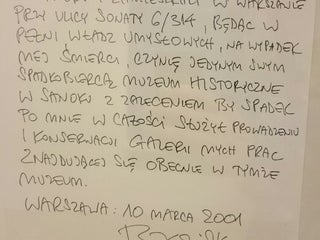 W WARSZAWIE
PRZY ULICY SONATY 6/314, BĘDĄC W
PEŁNI WŁADZ UMYSŁOWYCH, NA WYPADEK
MEJ ŚMIERCI, CZYNIĘ JEDYNYM SWYM
SPADKOBIERCĄ MUZEUM HISTORYCZNE
W SANOKU Z ZALECENIEM BY SPADEK
PO MNIE W CAŁOŚCI SŁUŻYŁ PROWADZENIU
I KONSERWACJI GALERII MYCH PRAC
ZNAJDUJĄCEJ SIĘ OBECNIE W TYMŻE
MUZEUM.
WARSZAWA: 10 MARCA 2001